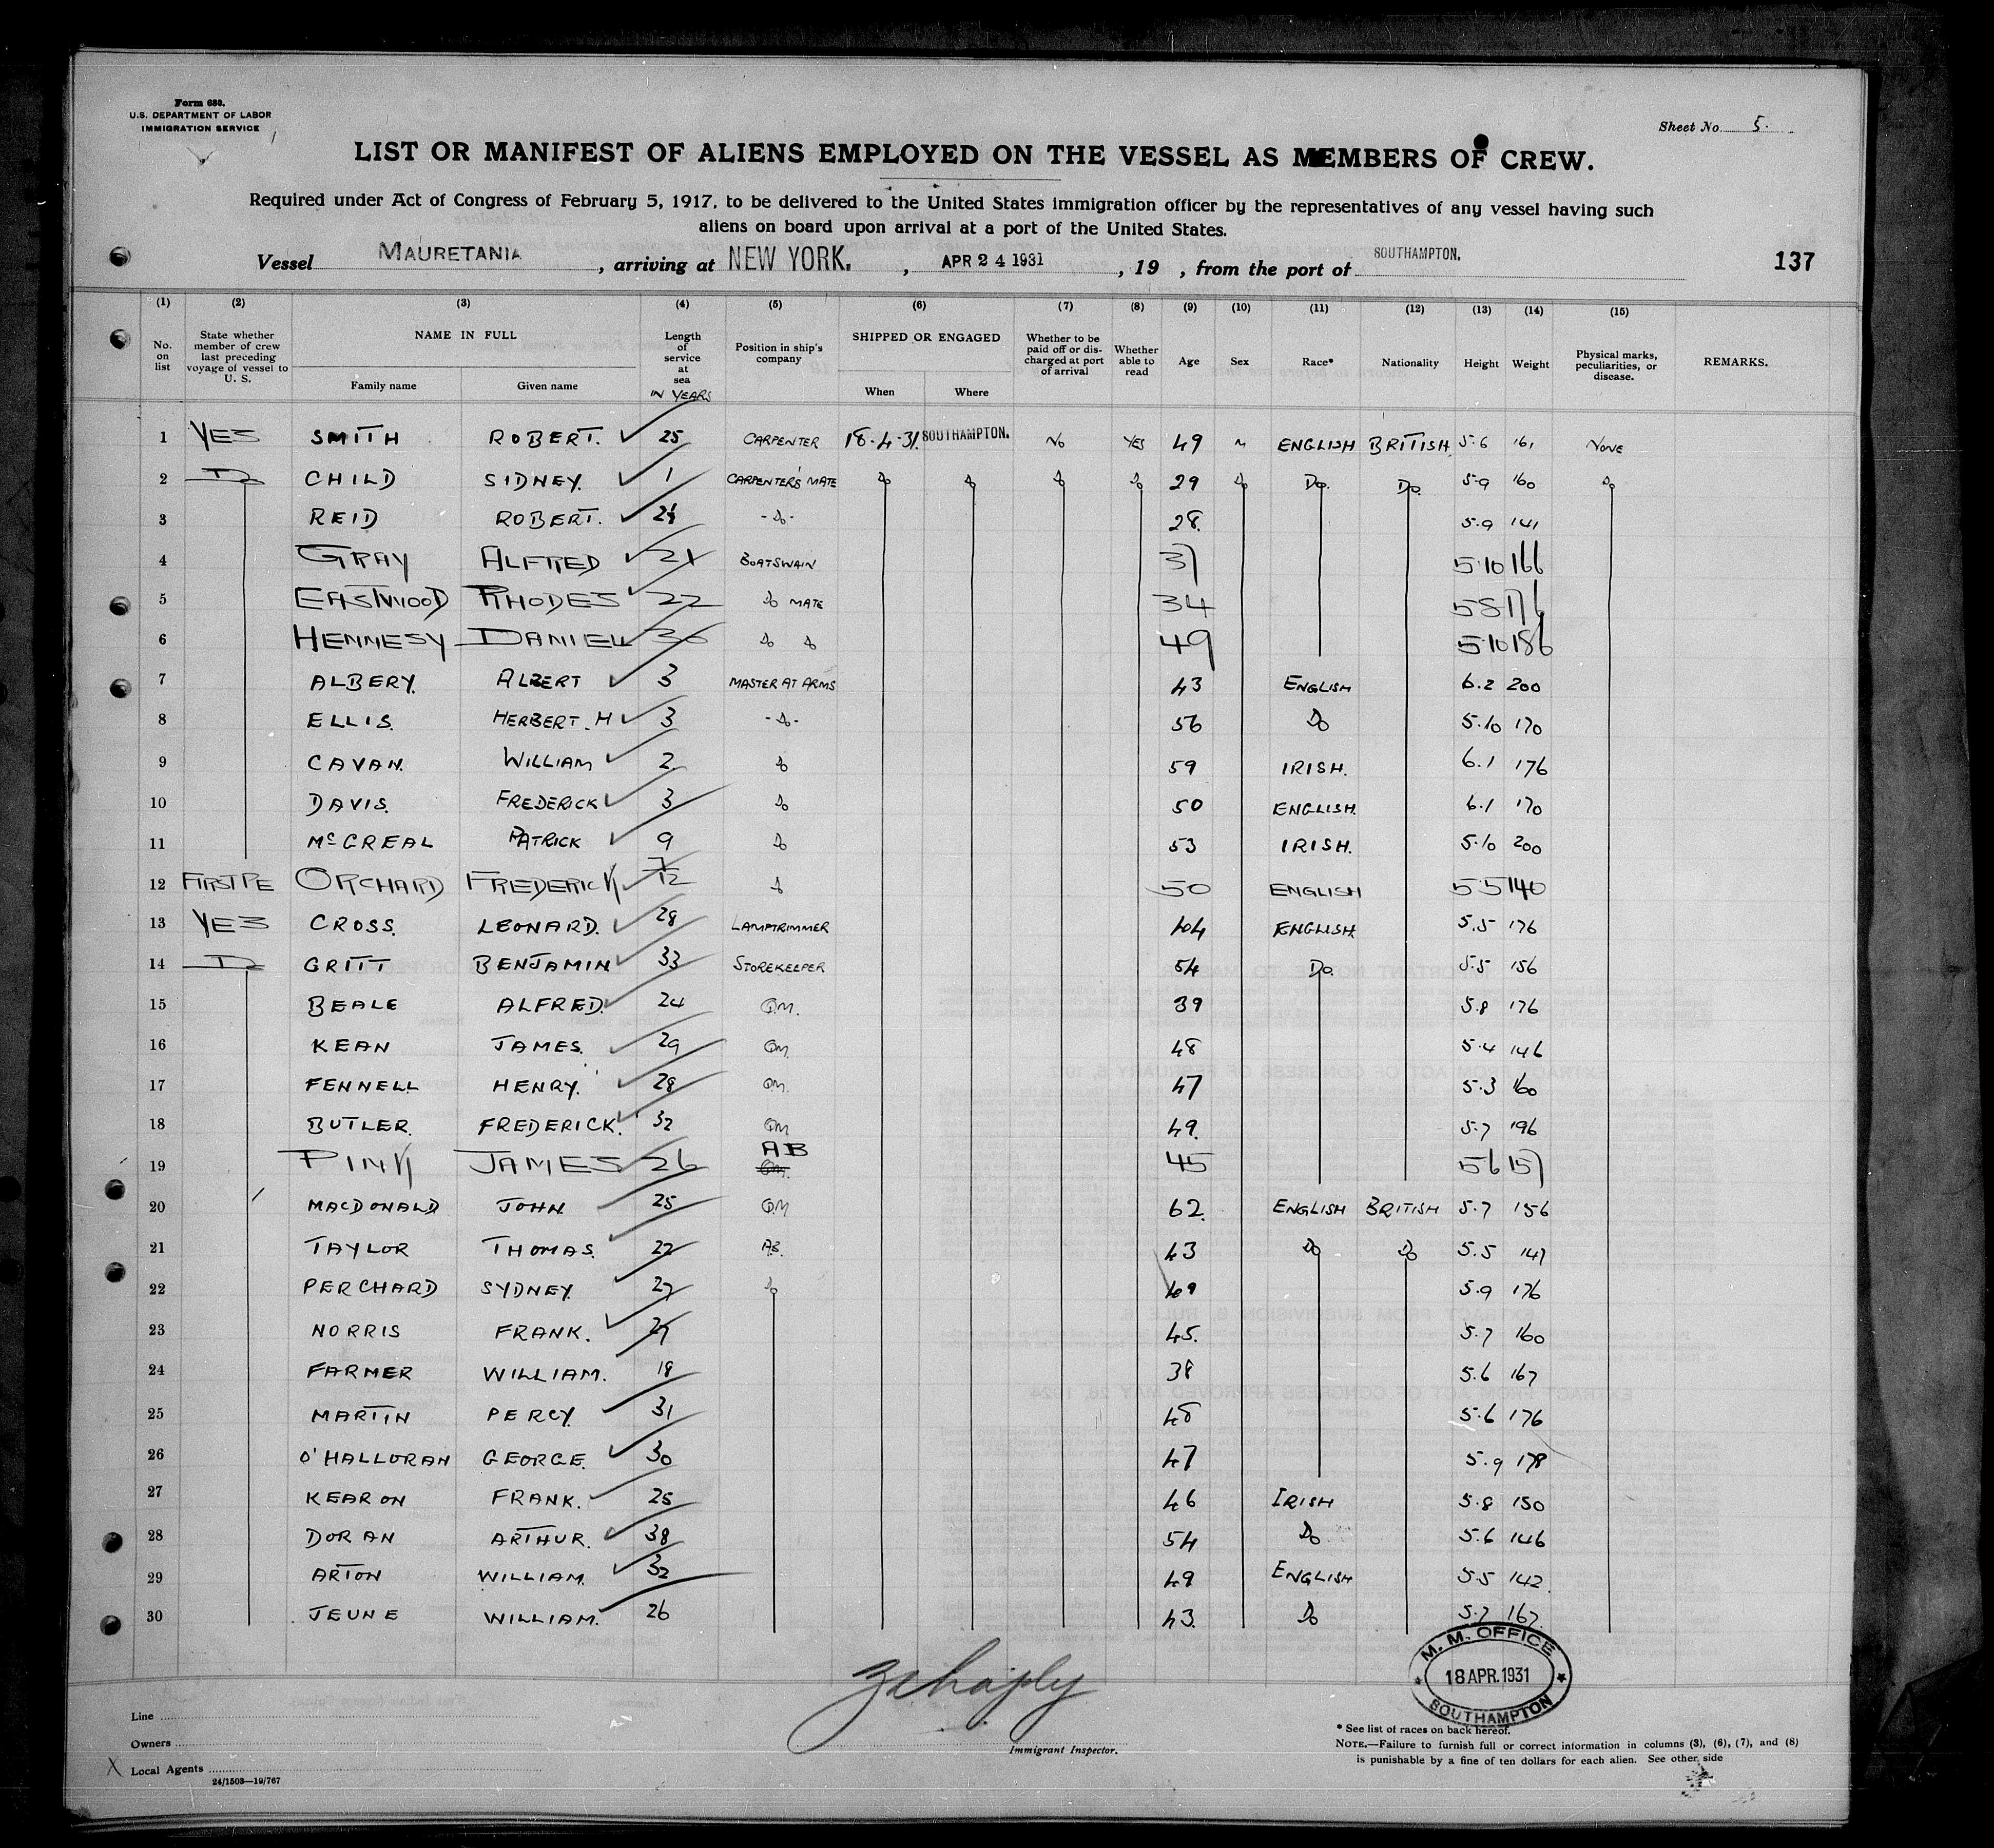 Form 680.
U.S. DEPARTMENT OF LABOR
IMMIGRATION SERVICE
Sheet No. 5.
LIST OR MANIFEST OF ALIENS EMPLOYED ON THE VESSEL AS MEMBERS OF CREW.
Required under Act of Congress of February 5, 1917, to be delivered to the United States immigration officer by the representatives of any vessel having such
aliens on board upon arrival at a port of the United States.
Vessel MAURETANIA, arriving at NEW YORK., APR 24 1931, 19 , from the port of SOUTHAMPTON. 137
(1) (2) (3) (4) (5) (6) (7) (8) (9) (10) (11) (12) (13) (14) (15)
No. on list | State whether member of crew last preceding voyage of vessel to U. S. | NAME IN FULL Family name Given name | Length of service at sea IN YEARS | Position in ship's company | SHIPPED OR ENGAGED When Where | Whether to be paid off or discharged at port of arrival | Whether able to read | Age | Sex | Race* | Nationality | Height | Weight | Physical marks, peculiarities, or disease. | REMARKS.
1 YES SMITH ROBERT. 25 CARPENTER 18-4-31. SOUTHAMPTON. NO YES 49 M ENGLISH BRITISH 5.6 161 NONE
2 Do CHILD SIDNEY. 1 CARPENTER'S MATE Do Do Do Do 29 Do Do. Do. 5.9 160 Do
3 REID ROBERT. -Do- 28. 5.9 141
4 GRAY ALFRED 21 BOATSWAIN 37 5.10 166
5 EASTWOOD RHODES 22 Do MATE 34 5 8 176
6 HENNESY DANIEL 30 Do Do 49 5.10 186
7 ALBERY. ALBERT 3 MASTER AT ARMS 43 ENGLISH 6.2 200
8 ELLIS. HERBERT. H 3 -Do- 56 Do 5.10 170
9 CAVAN. WILLIAM 2 Do 59 IRISH. 6.1 176
10 DAVIS. FREDERICK 3 Do 50 ENGLISH. 6.1 170
11 McGREAL PATRICK 9 Do 53 IRISH. 5.10 200
12 ORCHARD FREDERICK 7/12 Do 50 ENGLISH 5 5 140
13 YES CROSS. LEONARD. 28 LAMPTRIMMER 44 ENGLISH. 5.5 176
14 Do GRITT BENJAMIN 33 STOREKEEPER 54 Do. 5.5 156
15 BEALE ALFRED. 24 QM. 39 5.8 176
16 KEAN JAMES. 29 QM. 48 5.4 146
17 FENNELL HENRY. 28 QM. 47 5.3 160
18 BUTLER. FREDERICK. 32 QM 49. 5.7 196
19 PINK JAMES 26 AB QM. 45 5 6 157
20 MACDONALD JOHN 25 QM 62. ENGLISH BRITISH 5.7 156
21 TAYLOR THOMAS. 22 AB. 43 Do Do 5.5 147
22 PERCHARD SYDNEY. 27 Do 49 5.9 176
23 NORRIS FRANK. 27 45. 5.7 160
24 FARMER WILLIAM. 18 38 5.6 167
25 MARTIN PERCY. 31 48 5.6 176
26 O'HALLORAN GEORGE. 30 47 5.9 178
27 KEARON FRANK. 25 46 IRISH 5.8 150
28 DORAN ARTHUR. 38 54 Do 5.6 146
29 ARTON WILLIAM. 32 49 ENGLISH 5.5 142.
30 JEUNE WILLIAM. 26 43. Do 5.7 167.
M. M. OFFICE
18 APR. 1931
SOUTHAMPTON
Line
Owners
X Local Agents
24/1503—19/767
Immigrant Inspector.
* See list of races on back hereof.
NOTE.—Failure to furnish full or correct information in columns (3), (6), (7), and (8)
is punishable by a fine of ten dollars for each alien. See other side